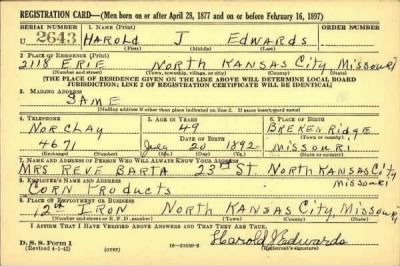 REGISTRATION CARD—(Men born on or after April 28, 1877 and on or before February 16, 1897)
SERIAL NUMBER 1. NAME (Print) ORDER NUMBER
U 2643 HAROLD J EDWARDS
(First) (Middle) (Last)
2. PLACE OF RESIDENCE (Print)
2118 ERIE NORTH KANSAS CITY MISSOURI
(Number and street) (Town, township, village, or city) (County) (State)
[THE PLACE OF RESIDENCE GIVEN ON THE LINE ABOVE WILL DETERMINE LOCAL BOARD
JURISDICTION; LINE 2 OF REGISTRATION CERTIFICATE WILL BE IDENTICAL]
3. MAILING ADDRESS
SAME
[Mailing address if other than place indicated on line 2. If same insert word same]
4. TELEPHONE 5. AGE IN YEARS 6. PLACE OF BIRTH
NORCLAY 49 BREKENRIDGE
DATE OF BIRTH (Town or county)
4671 July 20 1892 MISSOURI
(Exchange) (Number) (Mo.) (Day) (Yr.) (State or country)
7. NAME AND ADDRESS OF PERSON WHO WILL ALWAYS KNOW YOUR ADDRESS
MRS REVE BARTA 23rd ST. NORTH KANSAS CITY
MISSOURI
8. EMPLOYER'S NAME AND ADDRESS
CORN PRODUCTS
9. PLACE OF EMPLOYMENT OR BUSINESS
12th IRON NORTH KANSAS CITY, MISSOURI
(Number and street or R. F. D. number) (Town) (County) (State)
I AFFIRM THAT I HAVE VERIFIED ABOVE ANSWERS AND THAT THEY ARE TRUE.
D. S. S. Form 1
(Revised 4-1-42) (over) Harold J Edwards
(Registrant's signature)